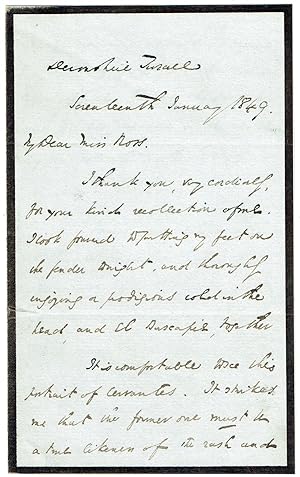 Devonshire Terrace
Seventeenth January 1849.
My Dear Miss Ross.
I thank you, very cordially,
for your kind recollection of me.
I look forward to putting my feet on
the fender tonight, and thoroughly
enjoying a prodigious cold in the
head, and together
It is comfortable to see this
portrait of Cervantes. It strikes
me that the former one must be
a true likeness of the rash and